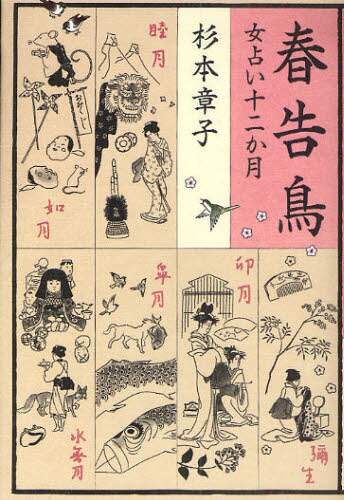 春告鳥
女占い十二か月
杉本章子
睦月
如月
卯月
皐月
彌生
水無月